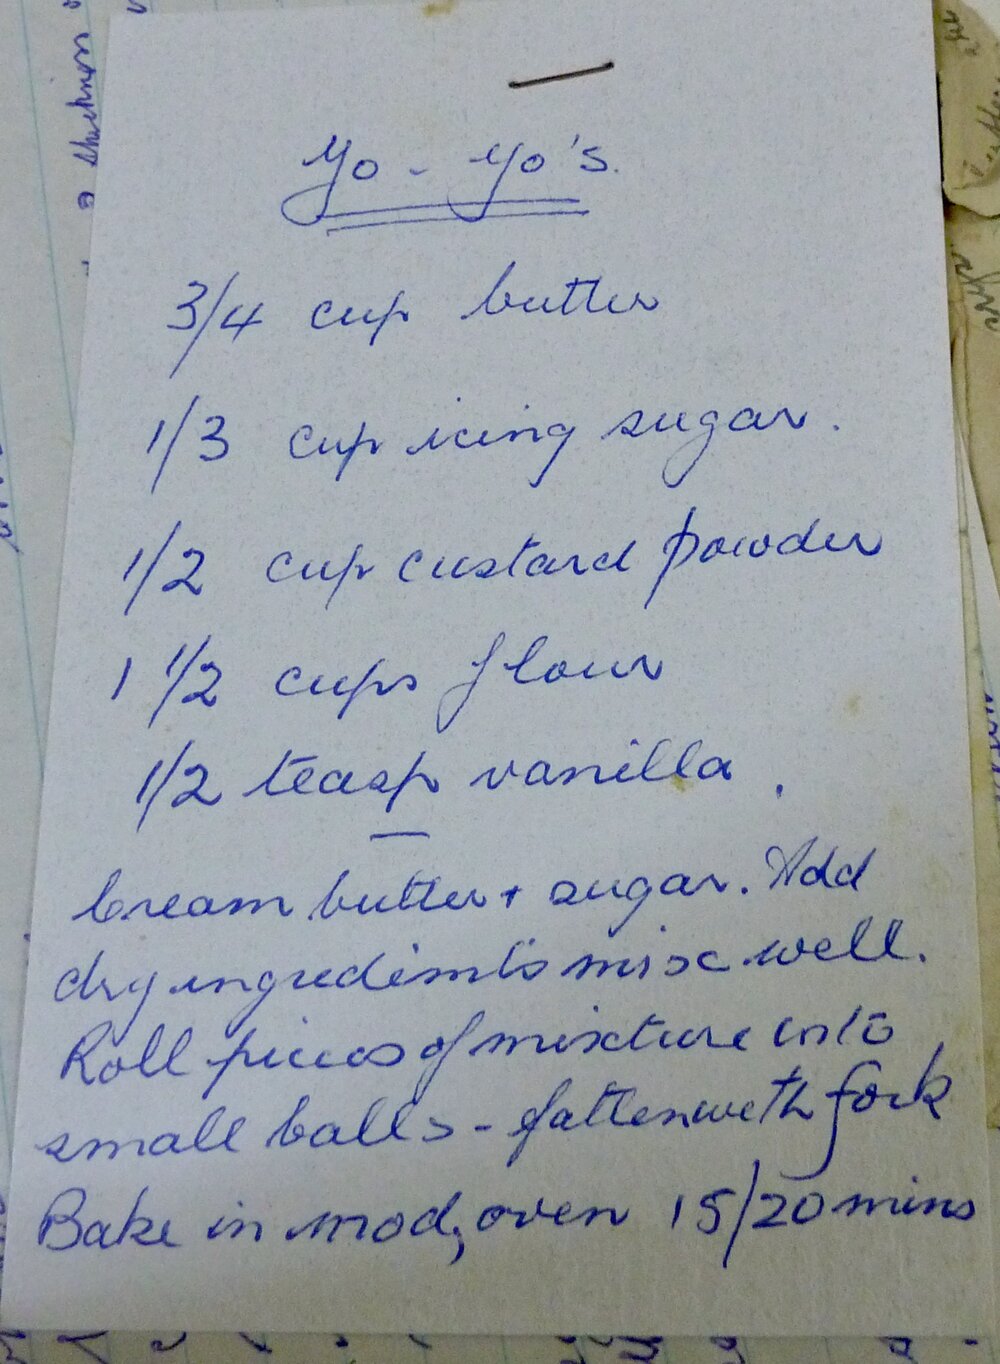 Yo - Yo's.
3/4 cup butter
1/3 cup icing sugar.
1/2 cup custard powder
1 1/2 cups flour
1/2 teasp vanilla.
Cream butter + sugar. Add
dry ingredients mix well.
Roll pieces of mixture into
small balls - flatten with fork
Bake in mod, oven 15/20 mins